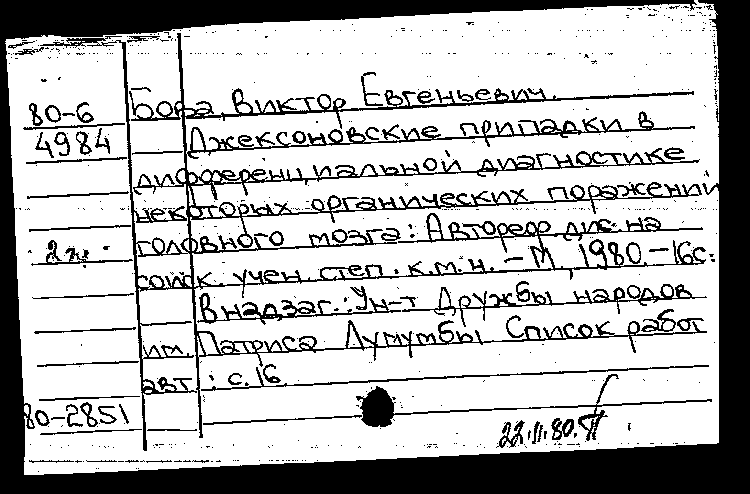 80-6
4984
Бора, Виктор Евгеньевич.
Джексоновские припадки в
дифференциальной диагностике
некоторых органических поражений
головного мозга: Автореф дис. на
соиск. учен. степ. к.м.н. – М, 1980. – 16с.
В надзаг.: Ун-т Дружбы народов
им. Патриса Лумумбы Список работ
авт.: с. 16
2 эк.
80-2851
22.II.80.